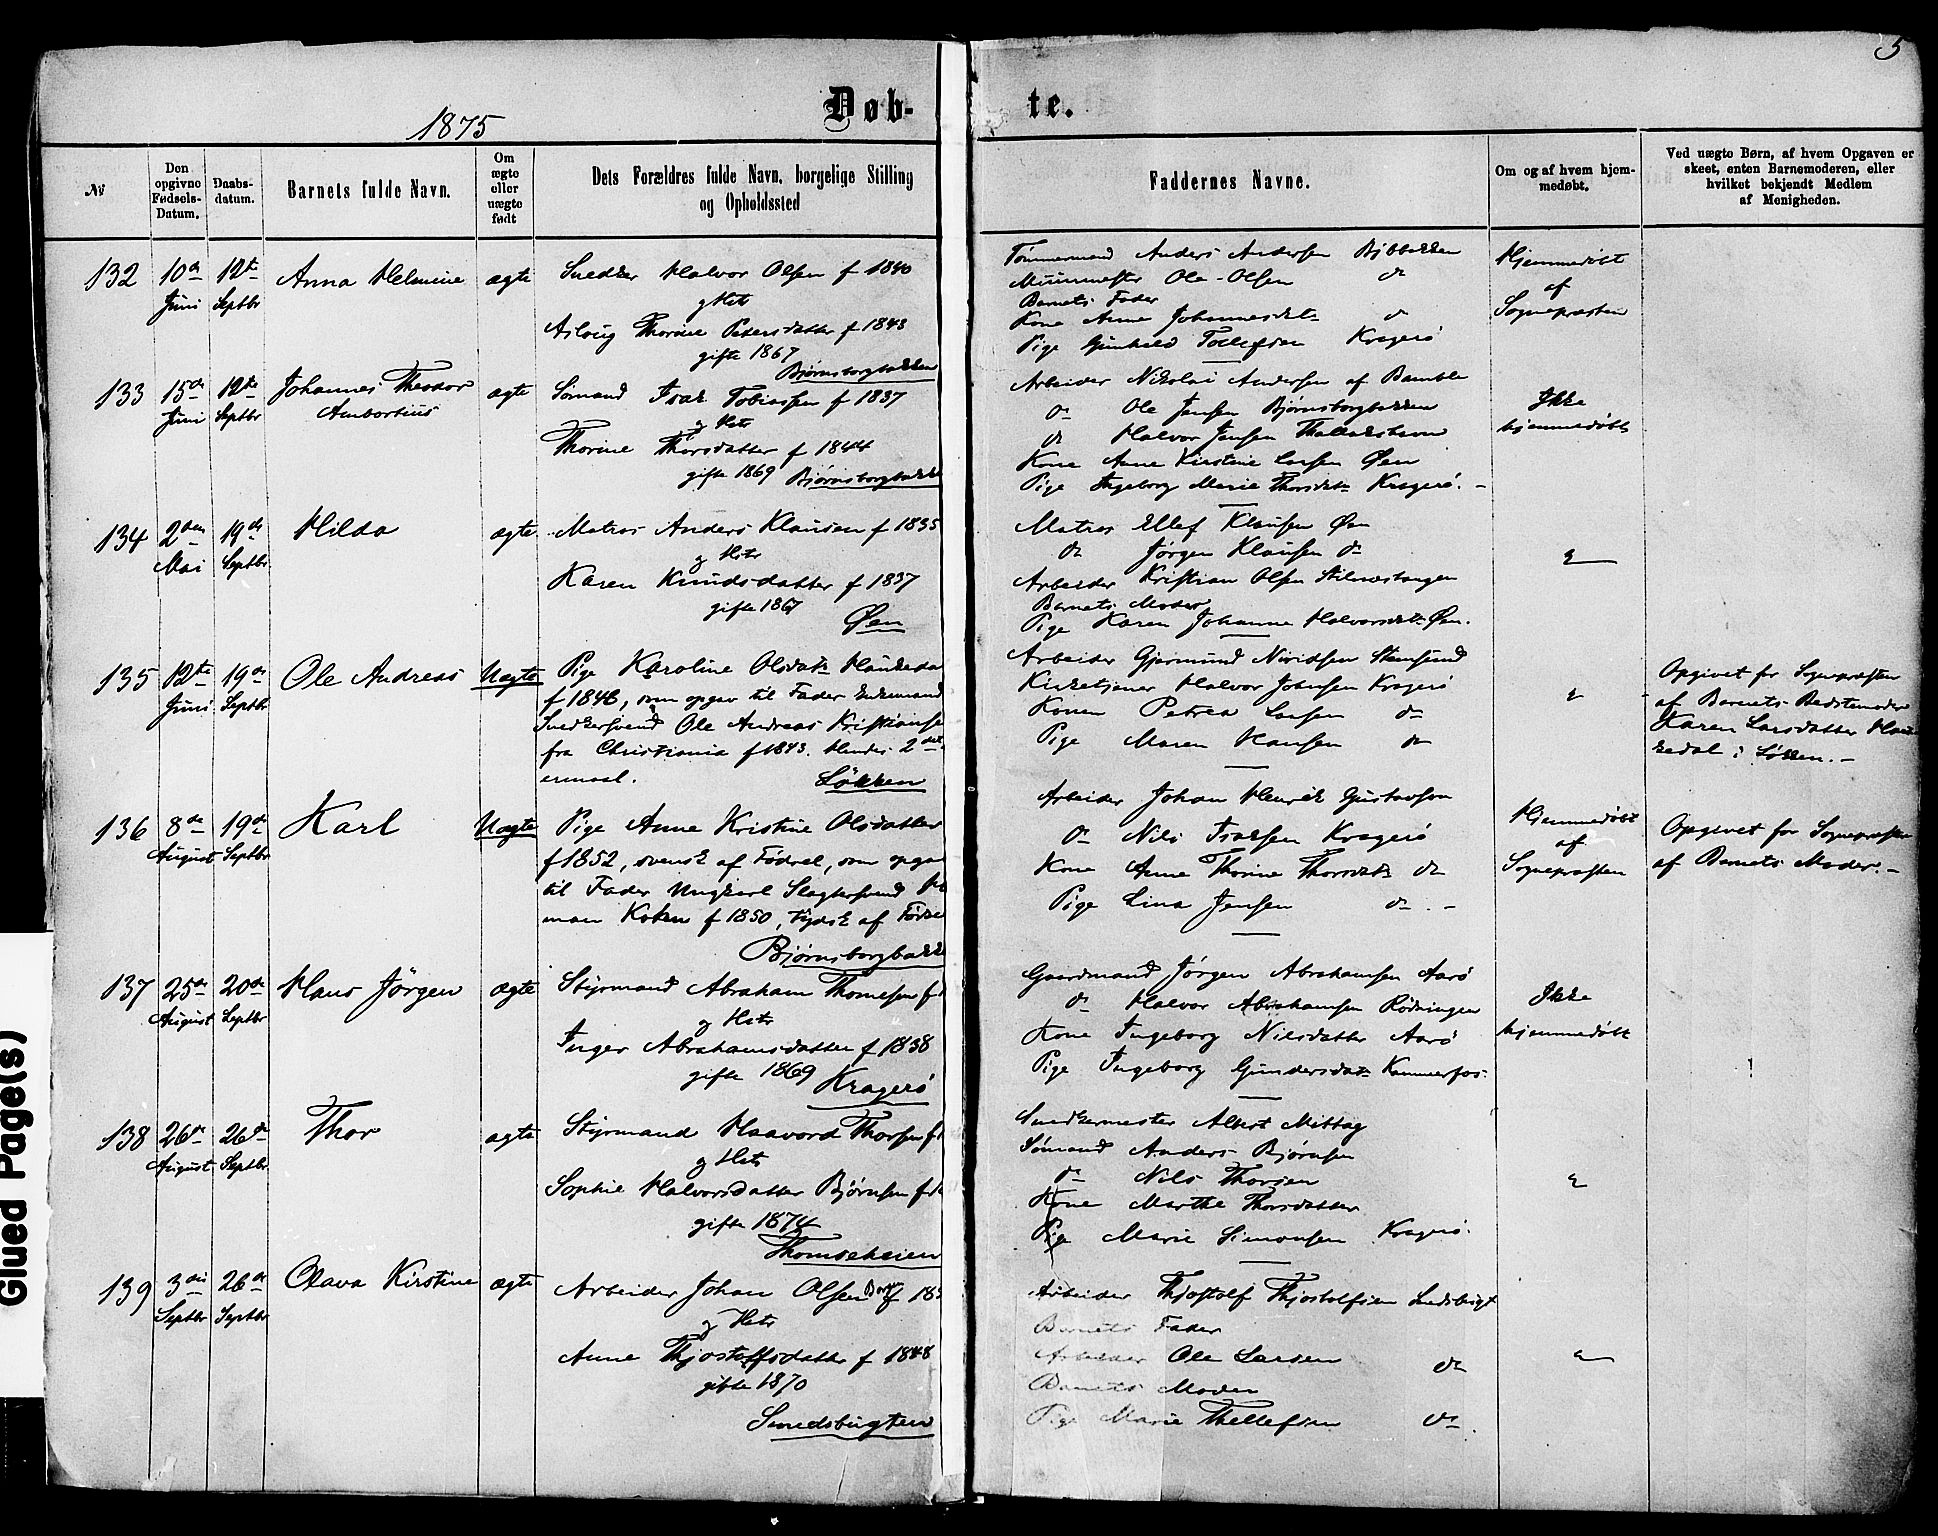 5
1875
Døb-
te.
№
Den opgivne Fødsels-Datum.
Daabs-datum.
Barnets fulde Navn.
Om ægte eller uægte født
Dets Forældres fulde Navn, borgelige Stilling og Opholdssted
Faddernes Navne.
Om og af hvem hjem-medøbt.
Ved uægte Børn, af hvem Opgaven er skeet, enten Barnemoderen, eller hvilket bekjendt Medlem af Menigheden.
132
10de Juni
12te Septbr
Anna Helmine
ægte
Snedker Halvor Olsen f 1840
og Hstr
Aslaug Thorine Pedersdatter f 1843
gifte 1867
Bjørnsborgbakken
Tømmermand Anders Andersen
Muurmester Ole Olsen do
Barnets Fader
Kone Anne Johannesdtr do
Pige Gunhild Tollefsen Kragerø
Hjemmedøbt
af
Sognepræsten
133
15de Juni
12te Septbr
Johannes Theodor
ægte
Sømand Isak Tobiassen f 1837
og Hstr
Thorine Thorsdatter f 1844
gifte 1869 Bjørnsborgbakke
Arbeider Nikolai Andersen af Bamble
do Ole Jensen Bjørnsborgbakken
do Halvor Jensen
Kone Anne Kirstine Larsen Øen
Pige Ingeborg Marie Thorsdtr Kragerø. -
Ikke
hjemmedøbt
134
2den Mai
19de Septbr
Hilda
ægte
Matros Anders Klausen f 1835
og Hstr
Karen Knudsdatter f 1837
gifte 1867
Øen
Matros Ellef Klausen Øen
do Jørgen Klausen do
Arbeider Kristian Olsen Stilnestangen
Barnets Moder
Pige Karen Johanne Halvorsdtr Øen.
"
135
12te Juni
19de Septbr
Ole Andreas
Uægte
Pige Karoline Olsdatr Haukeda
f 1846, som opgav til Fader Enkemand
Snedkersvend Ole Andreas Kristianse
fra Christiania f 1843. Hendes 2det
Løkken
Arbeider Gjermund Stensund
Kirketjener Halvor Johnsen Kragerø
Konen Petrea Larsen do
Pige Maren Hansen do
"
Opgivet for Sognepræsten
af Barnets Bedstemoder
Karen Larsdatter Hau
kedal i Løkken. -
136
8de August
19de Septbr
Karl
Uægte
Pige Anne Kristine Olsdatter
f 1852, svensk af Fødsel, som opga
til Fader Ungkarl Slagtersvend
man f 1850, tydsk af Fødse
Bjørnsborgbakke
Arbeider Johan Henrik Gustavson
do Nils Isaksen Kragerø
Kone Anne Thorine Thorsdatr do
Pige Lina Jensen do. -
Hjemmedøbt
af
Sognepræsten
Opgivet for Sognepræsten
af Barnets Moder. -
137
25de August
20de Septbr
Hans Jörgen
ægte
Styrmand Abraham Thomesen f
og Hstr
Inger Abrahamsdatter f 1838
gifte 1869 Kragerø
Gaardmand Jørgen Abrahamsen Aarø
do Halvor Abrahamsen Rödningen
Kone Ingeborg Nilsdatter Aarö
Pige Ingeborg Gundersdatr Kammerfos.
Ikke
hjemmedøbt
138
26de August
26de Septbr
Thor
ægte
Styrmand Haavord Thorsen f
og Hstr
Sophie Halvorsdatter Bjørnsen f
gifte 1874
Thomseheien
Snedkermester Albert Mittag
Sømand Anders Bjørnsen
do Nils Thorsen
Kone Marthe Thorsdatter
Pige Marie Simonsen Kragerø.
"
139
3die Septbr
26de Septbr
Olava Kirstine
ægte
Arbeider Johan Olsen f 18
og Hstr
Anne Thjostolfsdatter f 1848
gifte 1870
Smedsbugten
Arbeider Thjostolf Thjostolfsen Smedsbugt
Barnets Fader
Arbeider Ole Larsen do
Barnets Moder
Pige Marie Thellefsen do.
"
Glued Page(s)